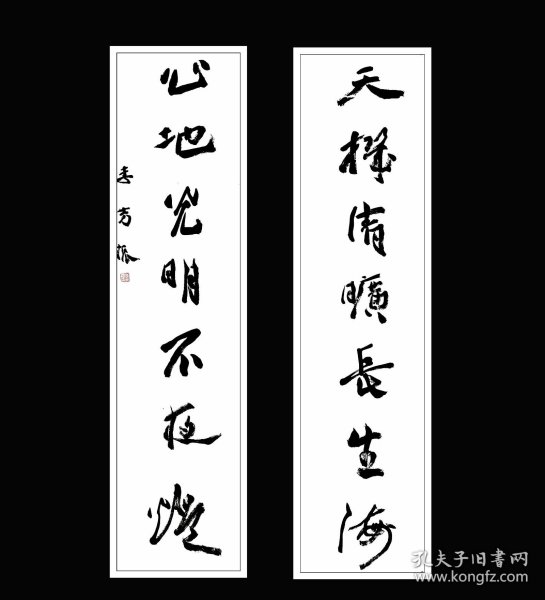 天機清曠長生海
心地光明不夜燈
孔夫子旧书网
www.kongfz.com